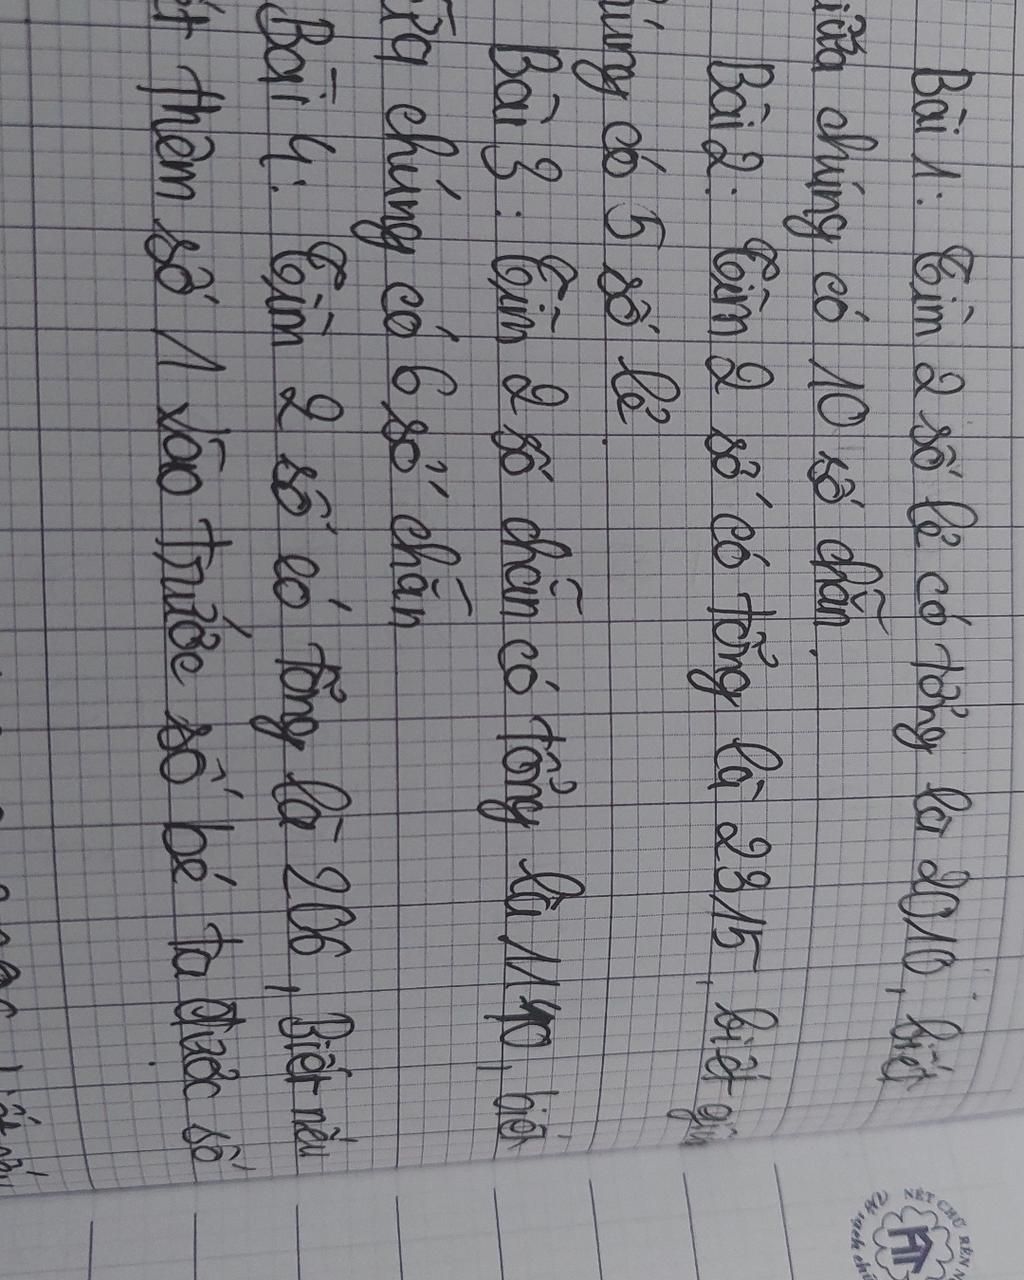 Bài 1: Tìm 2 số lẻ có tổng là 2010, biết
giữa chúng có 10 số chẵn.
Bài 2: Tìm 2 số có tổng là 2315, biết giữ
chúng có 5 số lẻ
Bài 3: Tìm 2 số chẵn có tổng là 1190, biết
chúng có 6 số chẵn
Bài 4: Tìm 2 số có tổng là 206, Biết nếu
thêm số 1 vào trước số bé ta được số
NÉT CHỮ